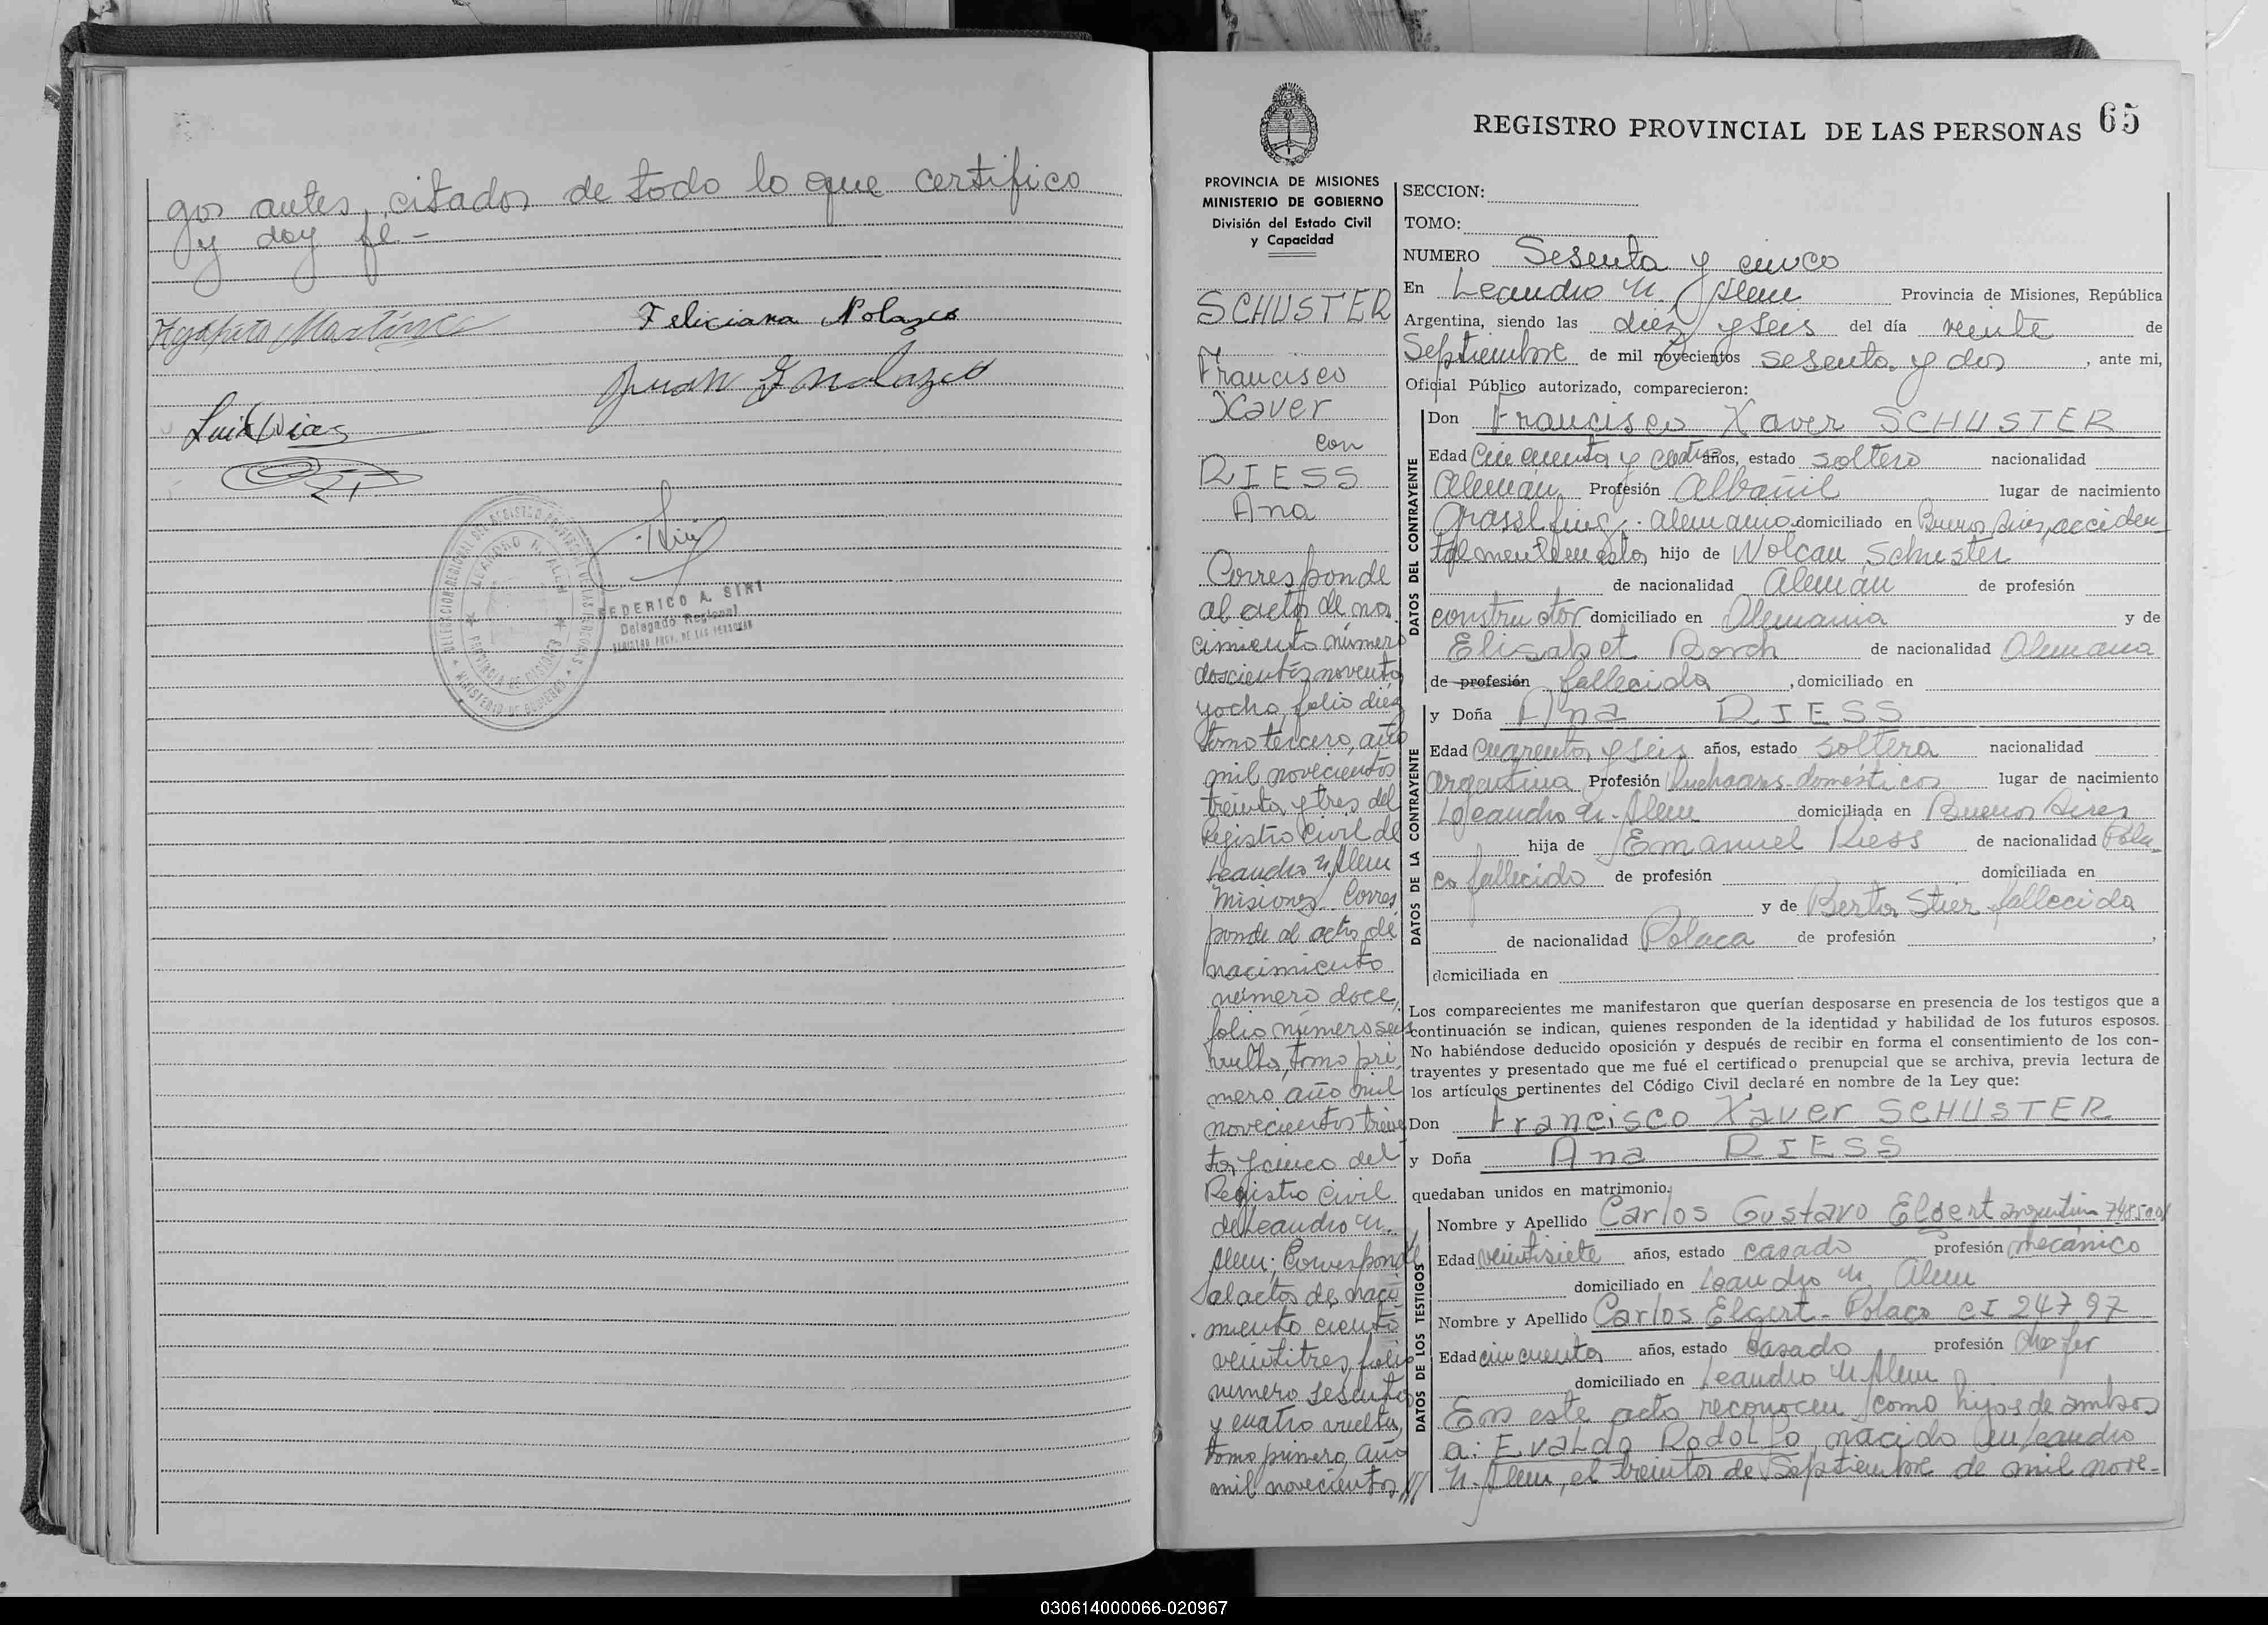 gos antes citados de todo lo que certifico
y doy fé.-
Feliciana Nolazco
Juan Nolazco
Luis Dias
DELEGACION REGIONAL DEL REGISTRO PROVINCIAL DE LAS PERSONAS
LEANDRO N. ALEM
PROVINCIA DE MISIONES
MINISTERIO DE GOBIERNO
FEDERICO A. SIRI
Delegado Regional
REGISTRO PROV. DE LAS PERSONAS
REGISTRO PROVINCIAL DE LAS PERSONAS 65
PROVINCIA DE MISIONES
MINISTERIO DE GOBIERNO
División del Estado Civil
y Capacidad
SCHUSTER
Francisco
Xaver
con
RIESS
Ana
Corresponde
al acta de na
cimiento número
doscientos noventa
y ocho, folio diéz
tomo tercero, año
mil novecientos
treinta y tres del
Registro Civil de
Leandro N. Alem
Misiones. Corres
ponde al acta de
nacimiento
número doce,
folio número seis
vuelta, tomo pri
mero año mil
novecientos trein
ta y cinco del
Registro Civil
de Leandro N.
Alem; Corresponde
al acta de naci
miento ciento
veintitres, folio
número sesenta
y cuatro vuelta,
tomo primero, año
mil novecientos ///
SECCION:
TOMO:
NUMERO Sesenta y cinco
En Leandro N. Alem Provincia de Misiones, República
Argentina, siendo las diéz y seis del día veinte de
Septiembre de mil novecientos sesenta y dos, ante mi,
Oficial Público autorizado, comparecieron:
DATOS DEL CONTRAYENTE
Don Francisco Xaver SCHUSTER
Edad Cincuenta y cuatro años, estado soltero nacionalidad
Alemán Profesión Albañil lugar de nacimiento
Grasslfing - Alemania domiciliado en Buenos Aires, acciden
talmente en esta, hijo de Wolcan Schuster
de nacionalidad Alemán de profesión
constructor domiciliado en Alemania y de
Elisabet Borch de nacionalidad Alemana
de profesión fallecida, domiciliado en
DATOS DE LA CONTRAYENTE
y Doña Ana RIESS
Edad Cuarenta y seis años, estado soltera nacionalidad
argentina Profesión Quehaceres domésticos lugar de nacimiento
Leandro N. Alem domiciliada en Buenos Aires
hija de Emanuel Riess de nacionalidad Pola-
co fallecido de profesión domiciliada en
y de Berta Stier fallecida
de nacionalidad Polaca de profesión ,
domiciliada en
Los comparecientes me manifestaron que querían desposarse en presencia de los testigos que a
continuación se indican, quienes responden de la identidad y habilidad de los futuros esposos.
No habiéndose deducido oposición y después de recibir en forma el consentimiento de los con-
trayentes y presentado que me fué el certificado prenupcial que se archiva, previa lectura de
los artículos pertinentes del Código Civil, declaré en nombre de la Ley que:
Don Francisco Xaver SCHUSTER
y Doña Ana RIESS
quedaban unidos en matrimonio.
DATOS DE LOS TESTIGOS
Nombre y Apellido Carlos Gustavo Elgert argentino
Edad veintisiete años, estado casado profesión mecánico
domiciliado en Leandro N. Alem
Nombre y Apellido Carlos Elgert - Polaco CI 24797
Edad cincuenta años, estado casado profesión chofer
domiciliado en Leandro N Alem
En este acto reconocen como hijos de ambos
a: EVALDO RODOLFO, nacido en Leandro
N. Alem, el treinta de Septiembre de mil nove-
030614000066-020967